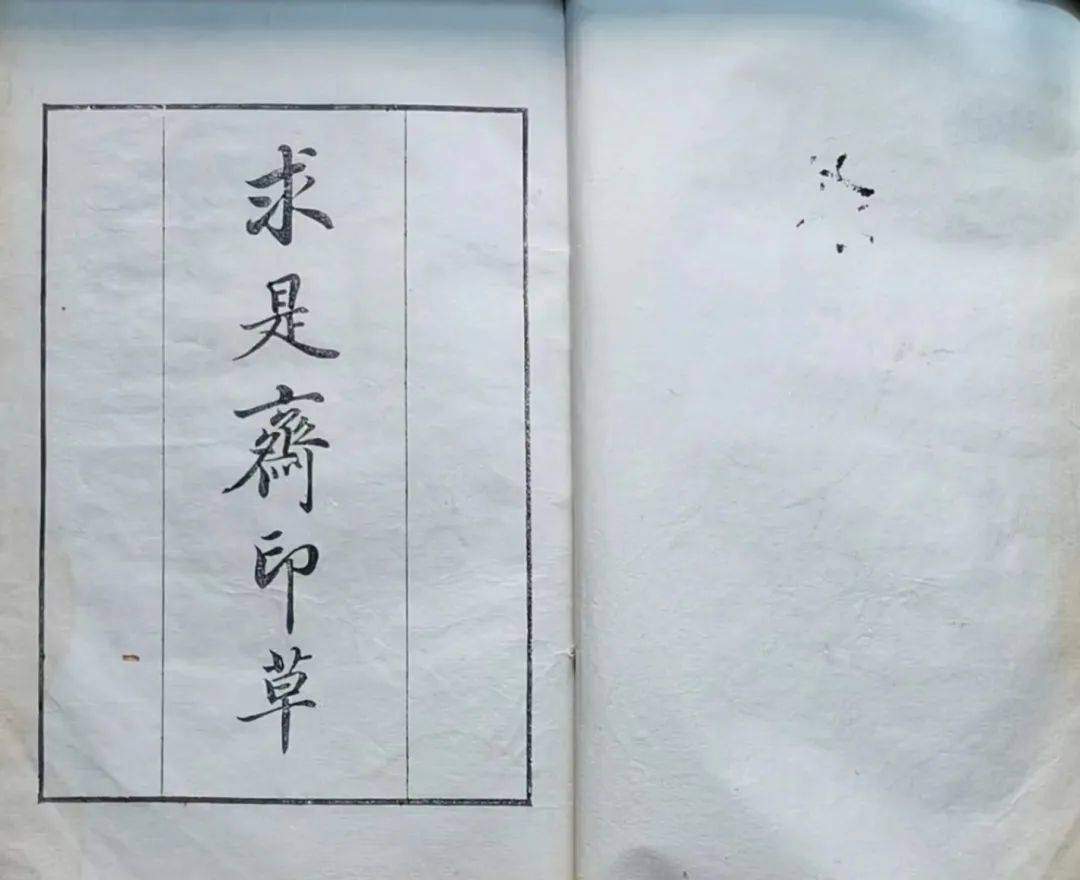 求是齋印草